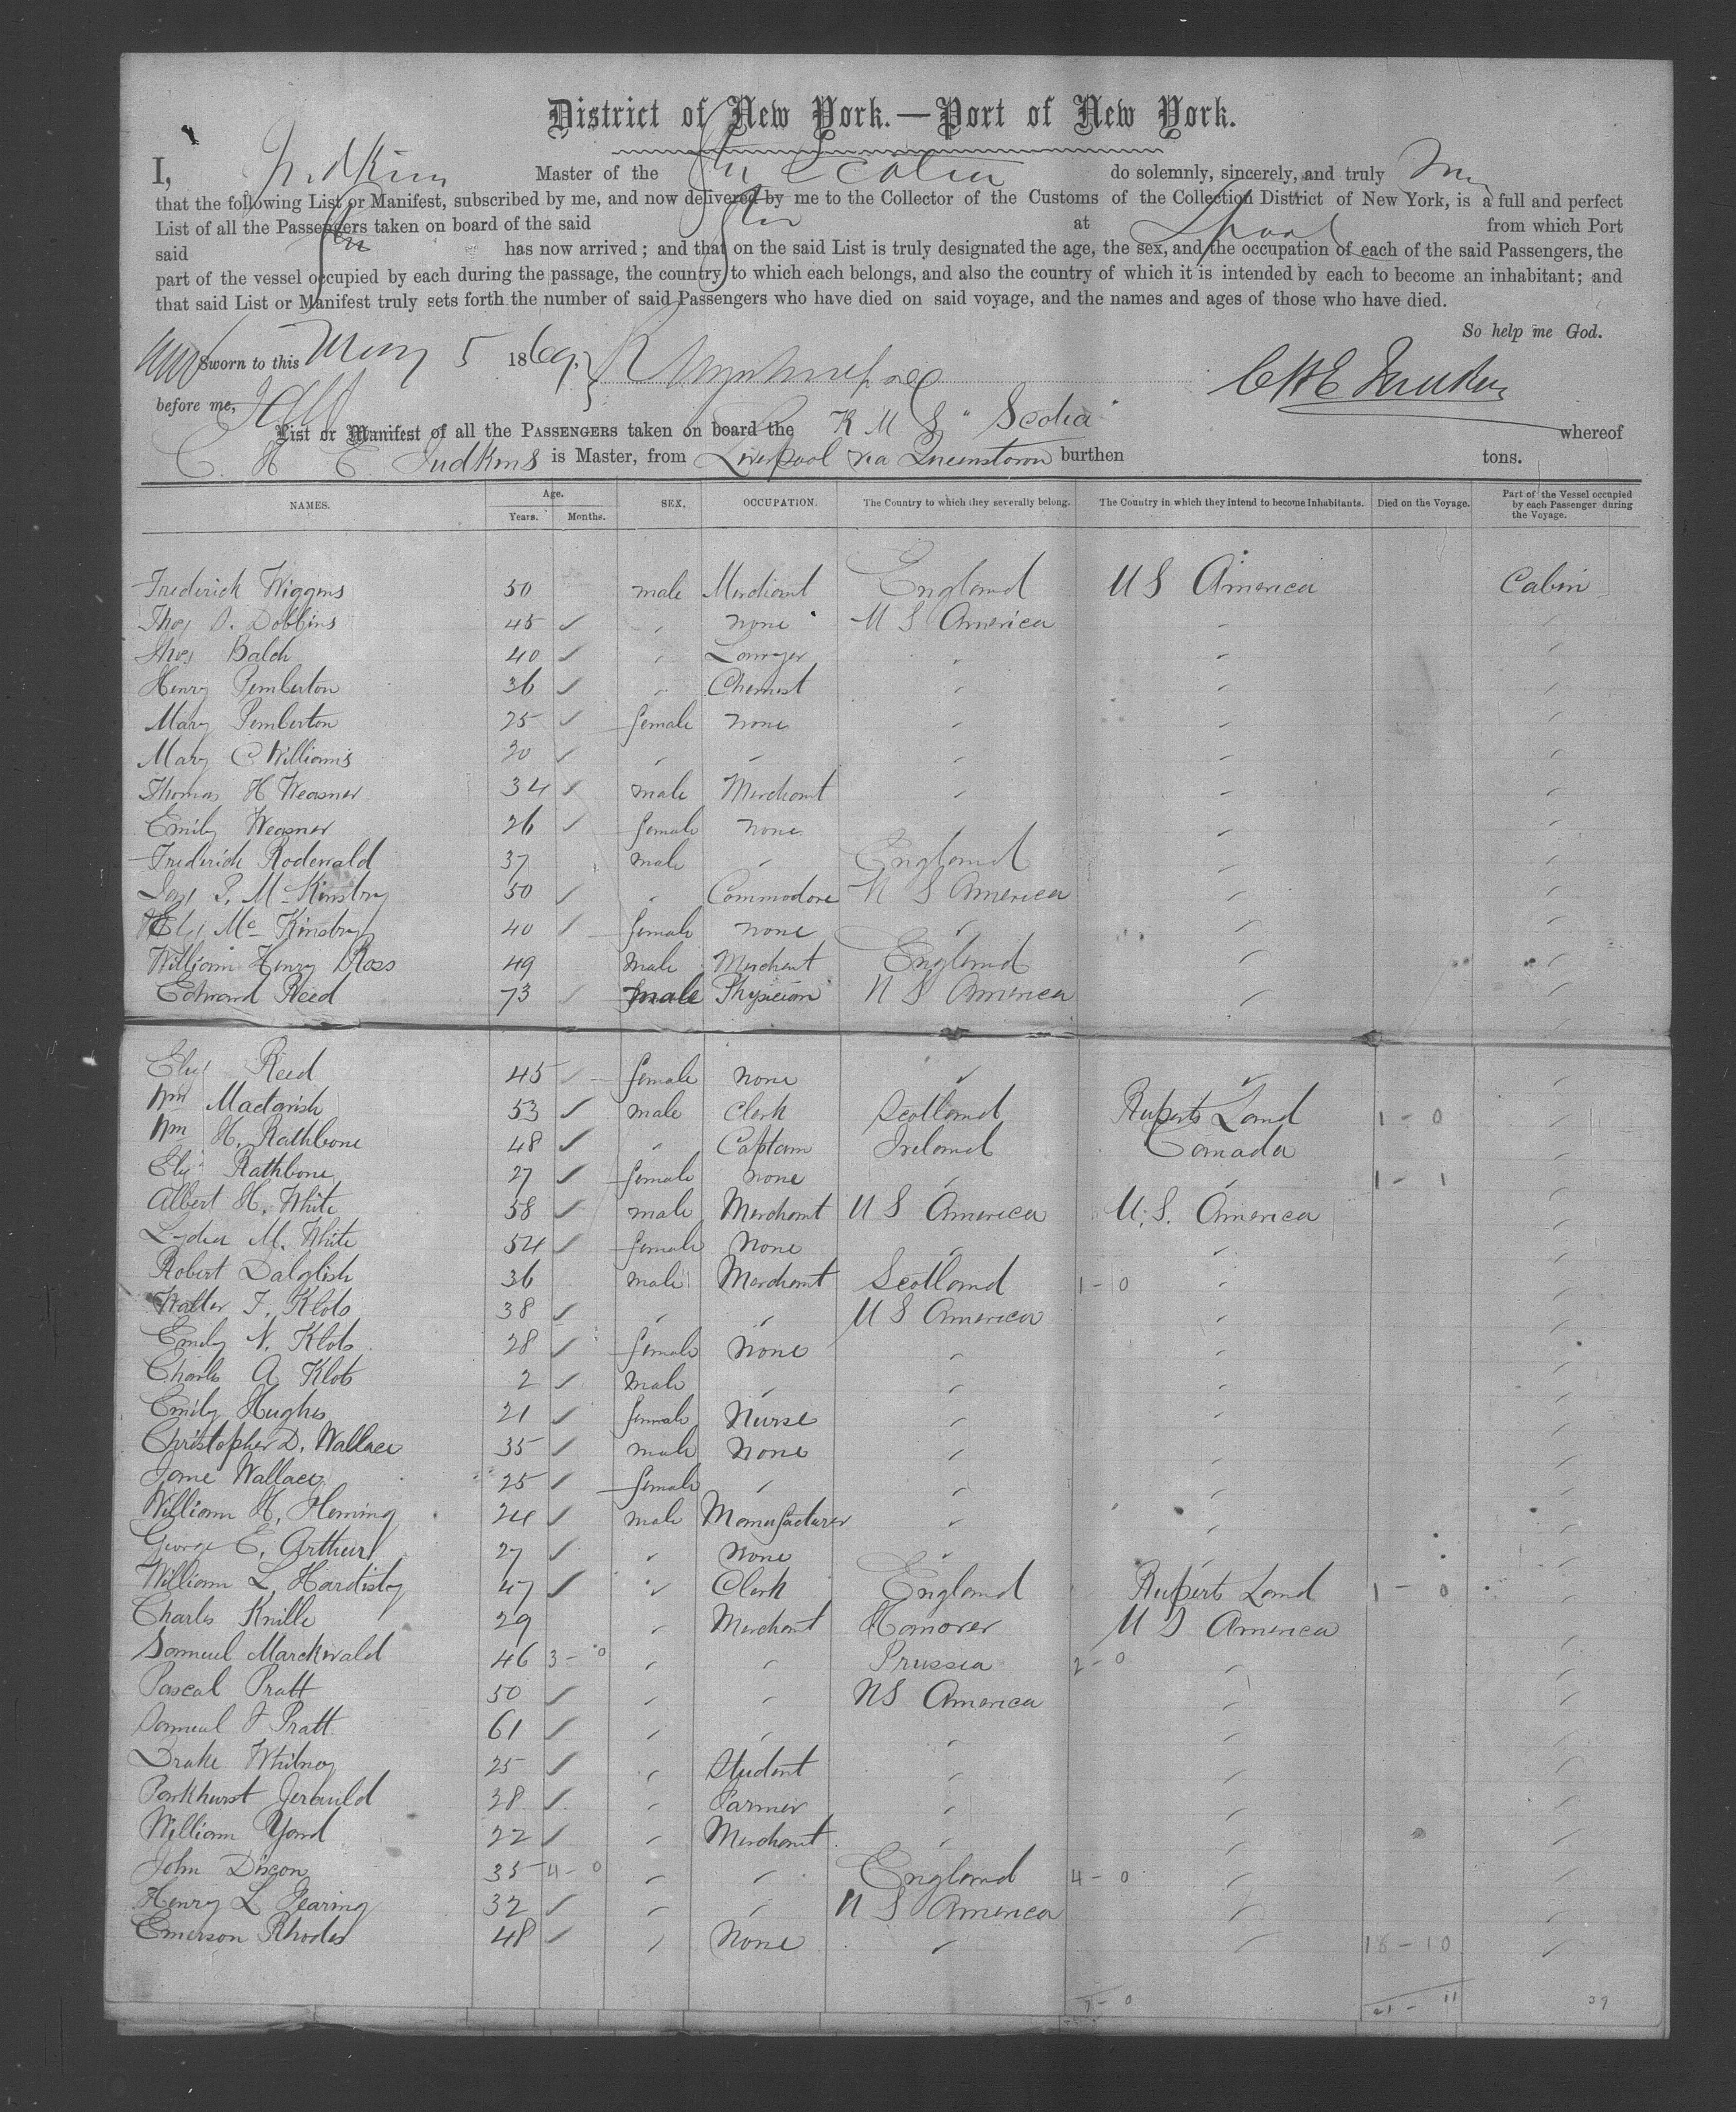 District of New York.—Port of New York.
I, Judkins Master of the Str Scotia do solemnly, sincerely, and truly
that the following List or Manifest, subscribed by me, and now delivered by me to the Collector of the Customs of the Collection District of New York, is a full and perfect
List of all the Passengers taken on board of the said Str at Lpool from which Port
said Str has now arrived; and that on the said List is truly designated the age, the sex, and the occupation of each of the said Passengers, the
part of the vessel occupied by each during the passage, the country to which each belongs, and also the country of which it is intended by each to become an inhabitant; and
that said List or Manifest truly sets forth the number of said Passengers who have died on said voyage, and the names and ages of those who have died.
So help me God.
Sworn to this May 5 1869,
before me,
List or Manifest of all the PASSENGERS taken on board the R M S "Scotia" whereof
C. H. E. Judkins is Master, from Liverpool via Queenstown burthen tons.
NAMES. Age. Years. Months. SEX. OCCUPATION. The Country to which they severally belong. The Country in which they intend to become Inhabitants. Died on the Voyage. Part of the Vessel occupied by each Passenger during the Voyage.
Frederick Wiggins 50 male Merchant England U S America Cabin
Thos D. Dobbins 45 ✓ " none U S America " "
Thos Balch 40 ✓ " Lawyer " " "
Henry Pemberton 36 ✓ " Chemist " " "
Mary Pemberton 25 ✓ female none " " "
Mary C Williams 30 ✓ " " " " "
Thomas H Weasner 34 ✓ male Merchant " " "
Emily Weasner 26 ✓ female none " "
Frederick Rodewald 37 male " England " "
P. McKinstry 50 ✓ " Commodore U S America " "
Mc Kinstry 40 ✓ female none " " "
William Henry Ross 49 male Merchant England " "
Edward Reed 73 ✓ male Physician U S America " "
Eliz Reed 45 ✓ female none " " "
Wm Mactavish 53 ✓ male Clerk Scotland Ruperts Land 1 - 0 "
Wm H. Rathbone 48 ✓ " Captain Ireland Canada "
Eliz Rathbone 27 ✓ female none " " 1 - 1 "
Albert H. White 58 ✓ male Merchant U S America U. S. America "
Lydia M. White 54 ✓ female None " " "
Robert Dalglish 36 male Merchant Scotland 1 - 0 " "
Walter T. Klots 38 ✓ " " U S America " "
Emily N. Klots 28 ✓ female None " " "
Charles A Klots 2 ✓ Male " " " "
Emily Hughes 21 ✓ female Nurse " " "
Christopher D. Wallace 35 ✓ male None " " "
Jane Wallace 25 ✓ female " " " "
William H. Fleming 24 ✓ male Manufacturer " " "
George E. Arthur 27 ✓ " None " " "
William L. Hardisty 47 ✓ " Clerk England Ruperts Land 1 - 0 "
Charles Knille 29 " Merchant Hanover U S America "
Samuel Marckwald 46 3 - 0 " " Prussia 2 - 0 " "
Pascal Pratt 50 ✓ " " U S America " "
Samuel F Pratt 61 ✓ " " " " "
Drake Whitney 25 ✓ " Student " " "
Parkhurst Jerauld 38 ✓ " Farmer " " "
William Yard 22 ✓ " Merchant " " "
John Dixon 35 4 - 0 " " England 4 - 0 " "
Henry L Fearing 32 ✓ " " U S America " "
Emerson Rhodes 48 ✓ " None " " 18 - 10 "
7 - 0 21 - 11 39